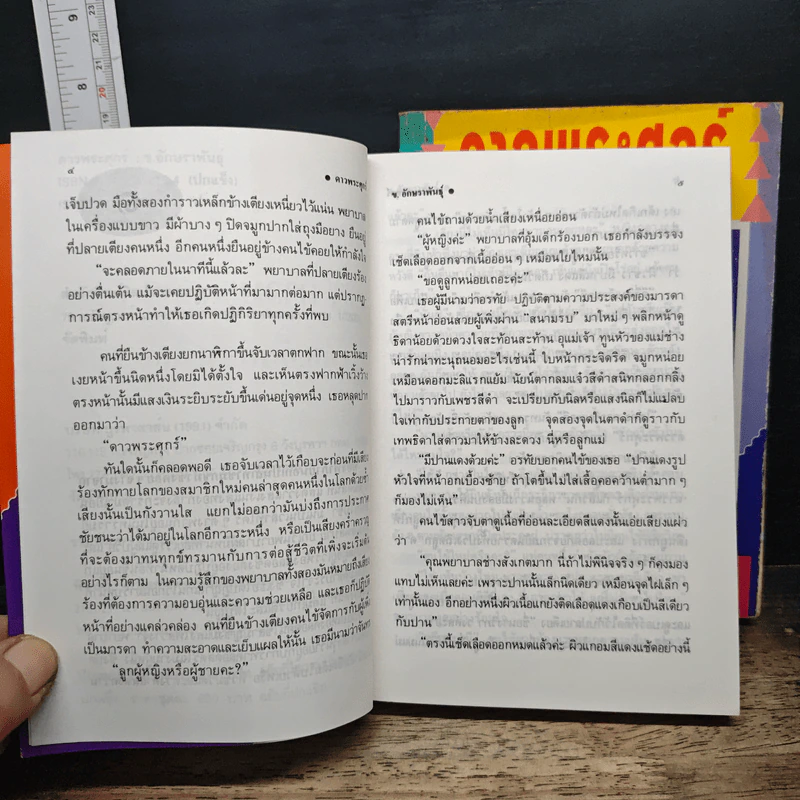 ๔
● ดาวพระศุกร์
เจ็บปวด มือทั้งสองกำราวเหล็กข้างเตียงเหนี่ยวไว้แน่น พยาบาล
ในเครื่องแบบขาว มีผ้าบาง ๆ ปิดจมูกปากใส่ถุงมือยาง ยืนอยู่
ที่ปลายเตียงคนหนึ่ง อีกคนหนึ่งยืนอยู่ข้างคนไข้คอยให้กำลังใจ
“จะคลอดภายในนาทีนี้แล้วละ” พยาบาลที่ปลายเตียงร้อง
อย่างตื่นเต้น แม้จะเคยปฏิบัติหน้าที่มามากต่อมาก แต่ปรากฏ-
การณ์ตรงหน้าทำให้เธอเกิดปฏิกิริยาทุกครั้งที่พบ
คนที่ยืนข้างเตียงยกนาฬิกาขึ้นจับเวลาตกฟาก ขณะนั้นเธอ
เงยหน้าขึ้นนิดหนึ่งโดยมิได้ตั้งใจ และเห็นตรงฟากฟ้าเวิ้งว้าง
ตรงหน้านั้นมีแสงเงินระยิบระยับขึ้นเด่นอยู่จุดหนึ่ง เธอหลุดปาก
ออกมาว่า
“ดาวพระศุกร์”
ทันใดนั้นก็คลอดพอดี เธอจับเวลาไว้เกือบจะก่อนที่มีเสียง
ร้องทักทายโลกของสมาชิกใหม่คนล่าสุดคนหนึ่งในโลกด้วยซ้ำ
เสียงนั้นเป็นกังวานใส แยกไม่ออกว่ามันบ่งถึงการประกาศ
ชัยชนะว่าได้มาอยู่ในโลกอีกวาระหนึ่ง หรือเป็นเสียงคร่ำครวญ
ที่จะต้องมาทนทุกข์ทรมานกับการต่อสู้ชีวิตที่เพิ่งจะเริ่มต้น
อย่างไรก็ตาม ในความรู้สึกของพยาบาลทั้งสองมันหมายถึงเสียง
ร้องที่ต้องการความอบอุ่นและความช่วยเหลือ และเธอก็ปฏิบัติ
หน้าที่อย่างแคล่วคล่อง คนที่ยืนข้างเตียงคนไข้จัดการกับผู้เพิ่ง
เป็นมารดา ทำความสะอาดและเย็บแผลให้นั้น เธอมีนามว่าจันท
“ลูกผู้หญิงหรือผู้ชายคะ?”
ข. อักษราพันธุ์ ●
๕
คนไข้ถามด้วยน้ำเสียงเหนื่อยอ่อน
“ผู้หญิงค่ะ” พยาบาลที่อุ้มเด็กร้องบอก เธอกำลังบรรจง
เช็ดเลือดออกจากเนื้ออ่อน ๆ เหมือนใยไหมนั้น
“ขอดูลูกหน่อยเถอะค่ะ”
เธอผู้มีนามว่าอรทัย ปฏิบัติตามความประสงค์ของมารดา
สตรีหน้าอ่อนสวยผู้เพิ่งผ่าน “สนามรบ” มาใหม่ ๆ พลิกหน้าดู
ธิดาน้อยด้วยดวงใจสะท้อนสะท้าน อุแม่เจ้า ทูนหัวของแม่ช่าง
น่ารักน่าทะนุถนอมอะไรเช่นนี้ ใบหน้ากระจิดริด จมูกหน่อย
เหมือนดอกมะลิแรกแย้ม นัยน์ตากลมแจ๋วสีดำสนิทกลอกกลิ้ง
ไปมาราวกับเพชรสีดำ จะเปรียบกับนิลหรือแสงนิลก็ไม่แม้นลบ
ใจเท่ากับประกายตาของลูก จุดสองจุดในตาดำก็ดูราวกับ
เทพธิดาใส่ดาวมาให้ข้างละดวง นี่หรือลูกแม่
“มีปานแดงด้วยค่ะ” อรทัยบอกคนไข้ของเธอ “ปานแดงรูป
หัวใจที่หน้าอกเบื้องซ้าย ถ้าโตขึ้นไม่ใส่เสื้อคอคว้านต่ำมาก ๆ
ก็มองไม่เห็น”
คนไข้สาวจับตาดูเนื้อที่อ่อนละเอียดสีแดงนั้นเอ่ยเสียงแผ่ว
ว่า
“คุณพยาบาลช่างสังเกตมาก นี่ถ้าไม่พินิจจริง ๆ ก็คงมอง
แทบไม่เห็นเลยค่ะ เพราะปานนั้นเล็กนิดเดียว เหมือนจุดไฝเล็ก ๆ
เท่านั้นเอง อีกอย่างหนึ่งผิวเนื้อแกยังติดเลือดแดงเกือบเป็นสีเดียว
กับปาน”
“ตรงนี้เช็ดเลือดออกหมดแล้วค่ะ ผิวแกอมสีแดงแช้ดอย่างนี้
ดาวพระศุกร์